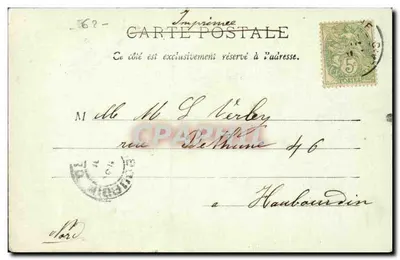 Imprimée
CARTE POSTALE
Ce côté est exclusivement réservé à l'adresse.
5
Melle M L Verley
CPARAMA
rue Béthune 46
a Haubourdin
Nord